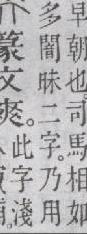 早朝也。司馬相如
多闇昧二字。乃用
篆文爽。此字淺